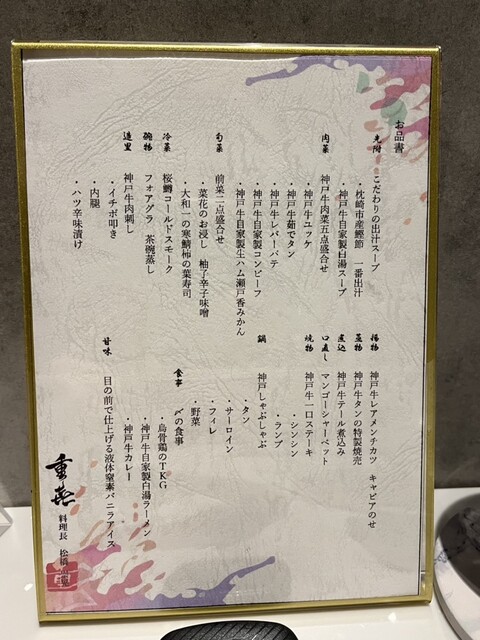 お品書
先附 こだわりの出汁スープ
・枕崎市産鰹節 一番出汁
・神戸牛自家製白湯スープ
肉菜 神戸牛肉菜五点盛合せ
・神戸牛ユッケ
・神戸牛茹でタン
・神戸牛レバーパテ
・神戸牛自家製コンビーフ
・神戸牛自家製生ハム瀬戸香みかん
旬菜 前菜二点盛合せ
・菜花のお浸し 柚子辛子味噌
・大和一の寒鯖柿の葉寿司
冷菜 桜鱒コールドスモーク
碗物 フォアグラ 茶碗蒸し
造里 神戸牛肉刺し
・イチボ叩き
・内腿
・ハツ辛味漬け
揚物 神戸牛レアメンチカツ キャビアのせ
蒸物 神戸牛タンの特製焼売
煮込 神戸牛テール煮込み
口直し マンゴーシャーベット
焼物 神戸牛一口ステーキ
・シンシン
・ランプ
鍋 神戸しゃぶしゃぶ
・タン
・サーロイン
・フィレ
・野菜
食事 〆の食事
・烏骨鶏のTKG
・神戸牛自家製白湯ラーメン
・神戸牛カレー
甘味 目の前で仕上げる液体窒素バニラアイス
料理長 松橋